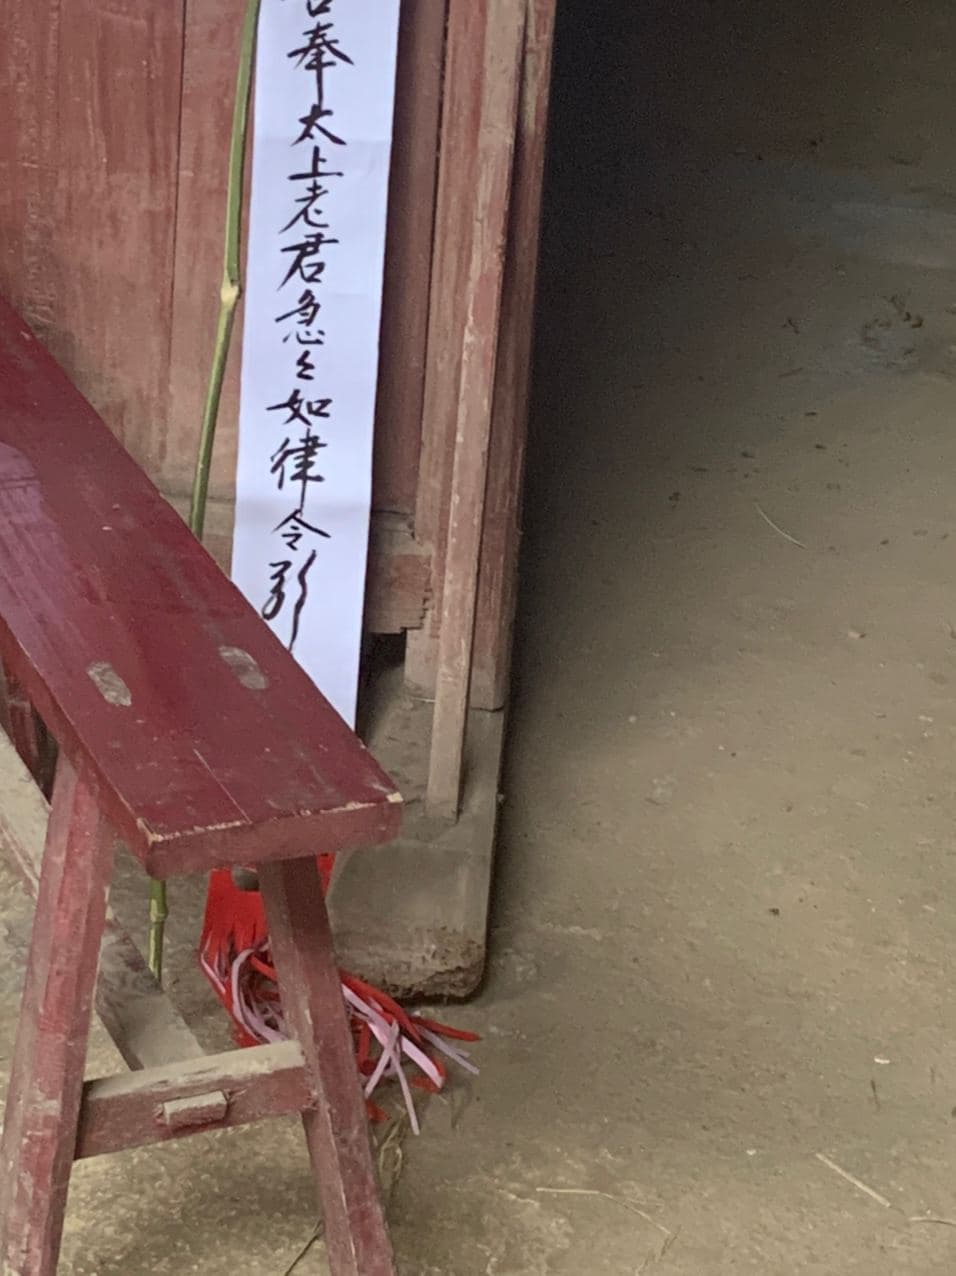 奉太上老君急々如律令引